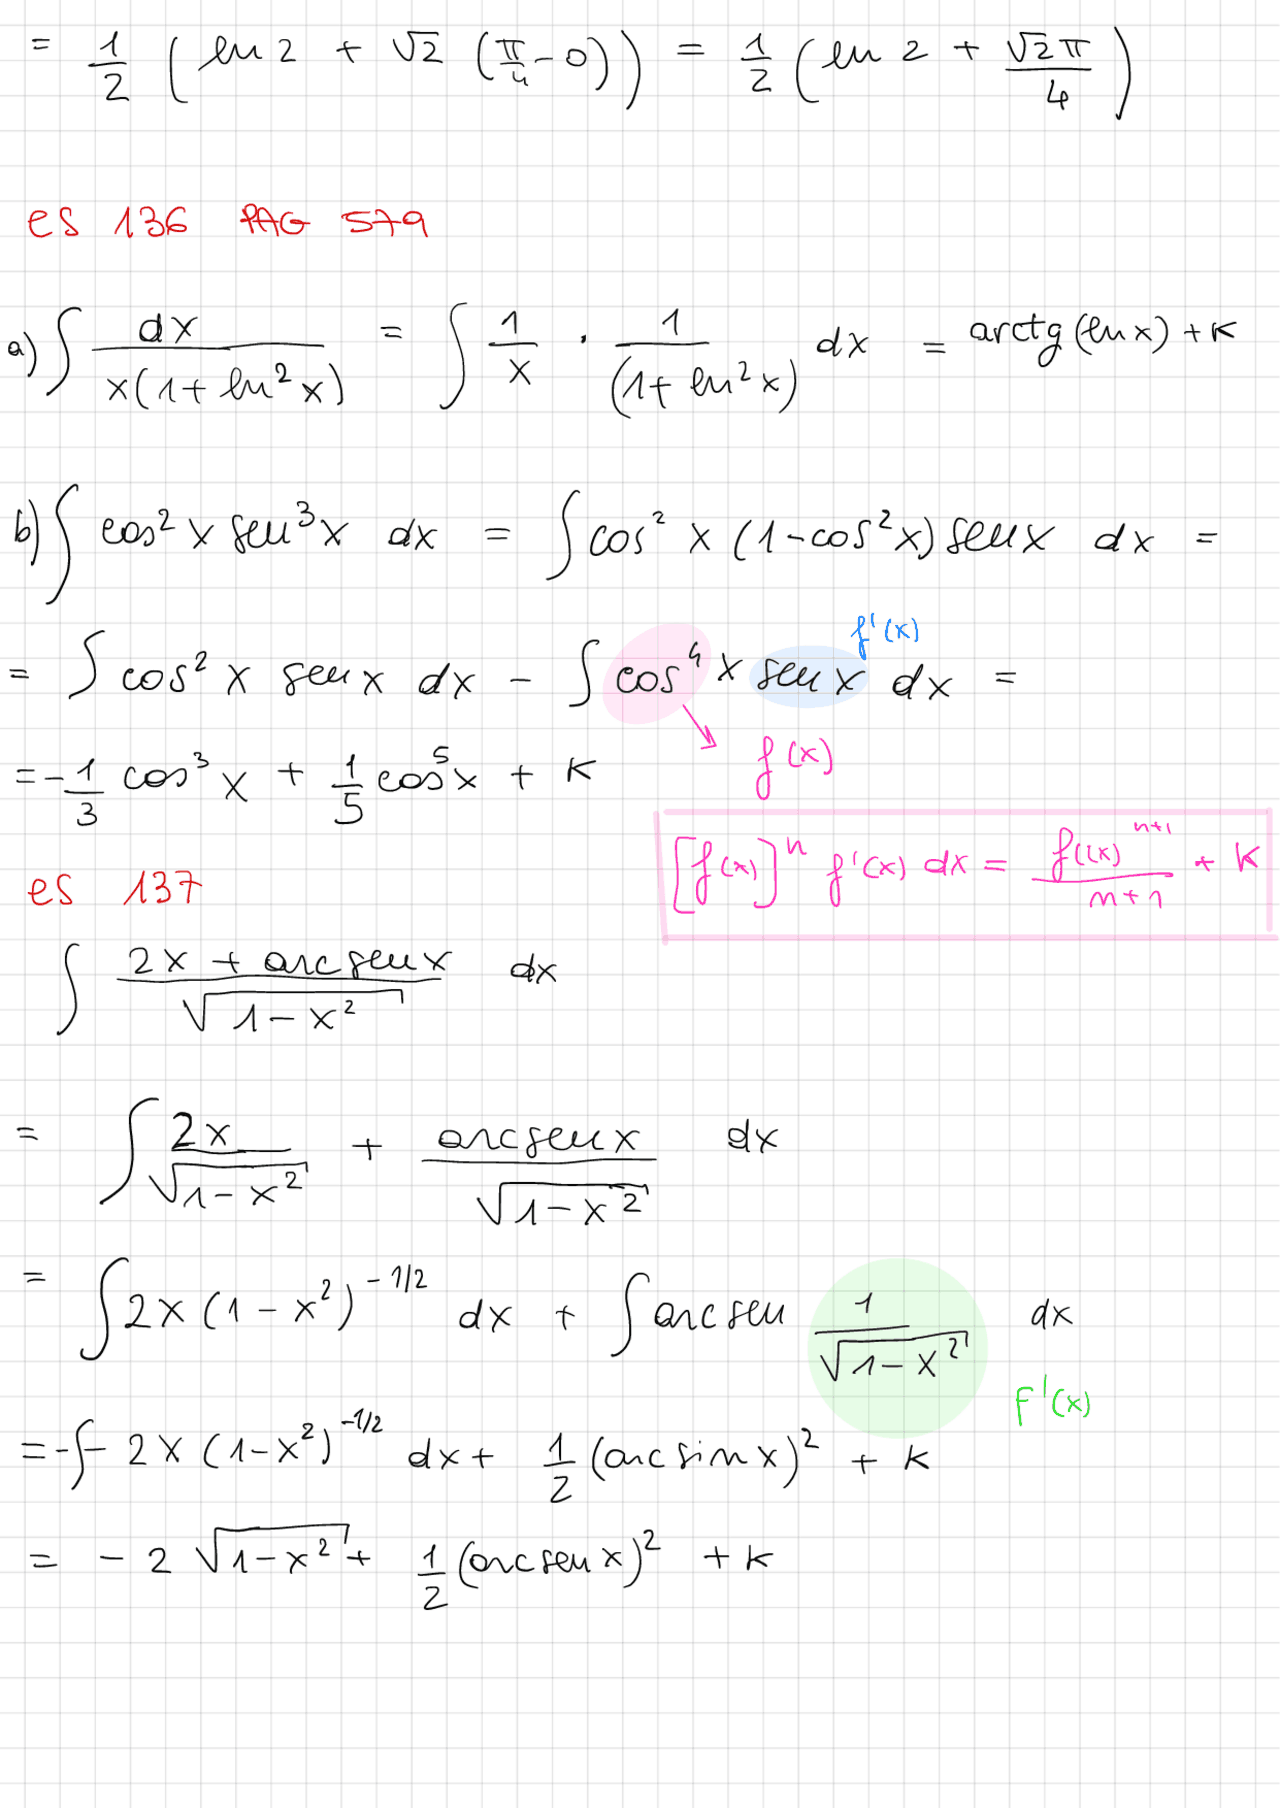 = 1/2 ( ln 2 + √2 (π/4 - 0)) = 1/2 ( ln 2 + √2 π/4 )
es 136 PAG 579
a) ∫ dx / x(1 + ln² x) = ∫ 1/x · 1/(1 + ln² x) dx = arctg (ln x) + k
b) ∫ cos² x sen³ x dx = ∫ cos² x (1 - cos² x) sen x dx =
f'(x)
= ∫ cos² x sen x dx - ∫ cos⁴ x sen x dx =
f(x)
= - 1/3 cos³ x + 1/5 cos⁵ x + k
[f(x)]ⁿ f'(x) dx = f(x)ⁿ⁺¹ / n+1 + k
es 137
∫ 2x + arcsen x / √1 - x² dx
= ∫ 2x / √1 - x² + arcsen x / √1 - x² dx
= ∫ 2x (1 - x²)^-1/2 dx + ∫ arcsen 1 / √1 - x² dx
F'(x)
= - ∫ - 2x (1 - x²)^-1/2 dx + 1/2 (arcsin x)² + k
= - 2 √1 - x² + 1/2 (arcsen x)² + k